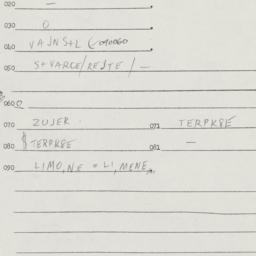 020 —
030 0
040 VAJNS+L
050 S+VARCE/REJTE/—
060
070 ZUJER 071 TERPK8E
080 TERPK8E 081 —
090 LIMO,NE = LI,MENE,